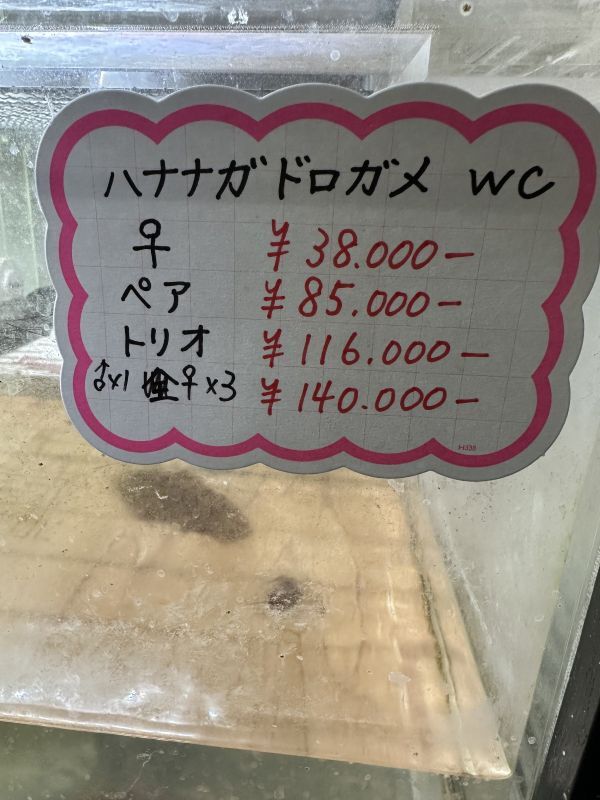 ハナナガドロガメ WC
♀ ¥38.000-
ペア ¥85.000-
トリオ ¥116.000-
♂×1 ♀×3 ¥140.000-
H338